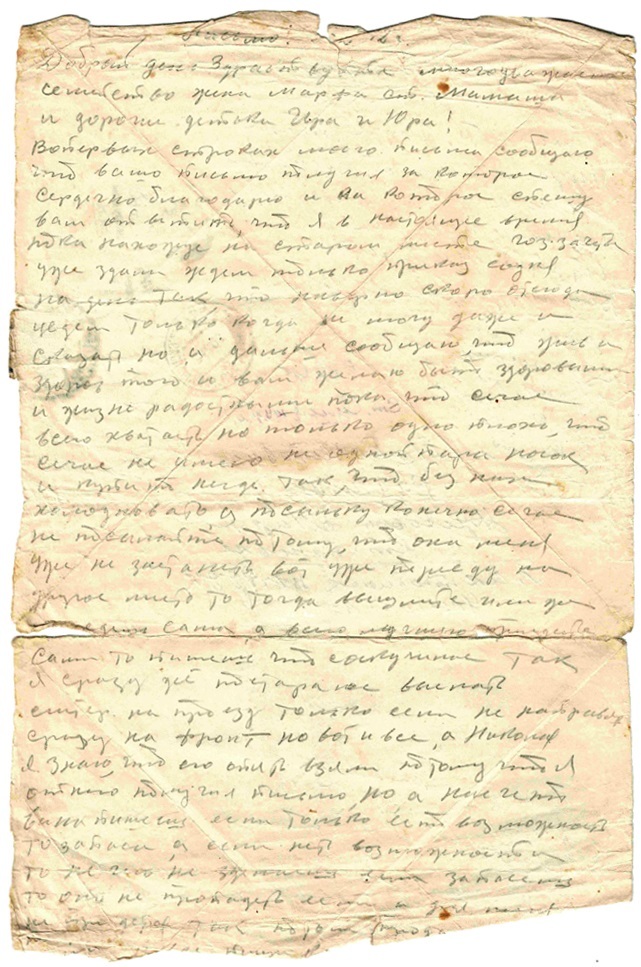 Письмо!
Добрый день Здравствуйте многоуважаемое
семейство жена Марфа ст. Мамаша
и дороги детки Гера и Юра!
Вопервых строках моего письма сообщаю
что вашо письмо получил за которое
сердечно благодарю и на которое спешу
вам ответить, что я в настоящее время
пока нахожус на старом месте гоз.зачёты
уже здали ждем только приказ
на день так что наверно скоро отсюда
уедем только когда не могу даже и
сказать но и дальше сообщаю, что жив и
здоров того и вам желаю быть здоровыми
и жизне радостными пока что сечас
всего хватает но только одно плохо, что
сечас не имею не одной пары носок
и купить негде, так что без них
а посылку конечно сечас
не посылайте потому, что она меня
уже не застанеть вот уже перееду на
другое место то тогда вышлите или же
сама, а было лучше
сами то пишеш что соскучилас так
я сразу же постараюс выслать
на проезд только если не направят
сразу на фронт но вот и все, а Николая
я знаю что его опять взяли потому что я
от него получил письмо, но а насчет
вина пишеш если только есть возможность
то запаси а если неть возможности
то не чего не если запасеш
то оно не пропадеть если и для меня
не так